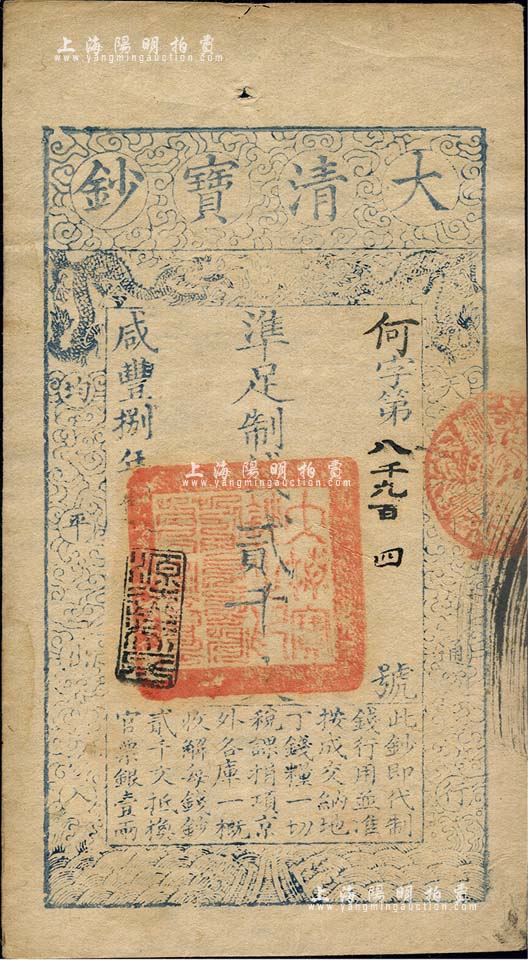 上海陽明拍賣
www.yangmingauction.com
大清寶鈔
何字第八千九百四號
準足制錢貳千
咸豐捌年
天
通行
均平
入
此鈔即代制
錢行用並准
按成交納地
丁錢糧一切
稅課捐項京
外各庫一概
收解每錢鈔
貳千文抵換
官票銀壹兩
上海陽明拍賣
www.yangmingauction.com
上海陽明拍賣
www.yangmingauction.com